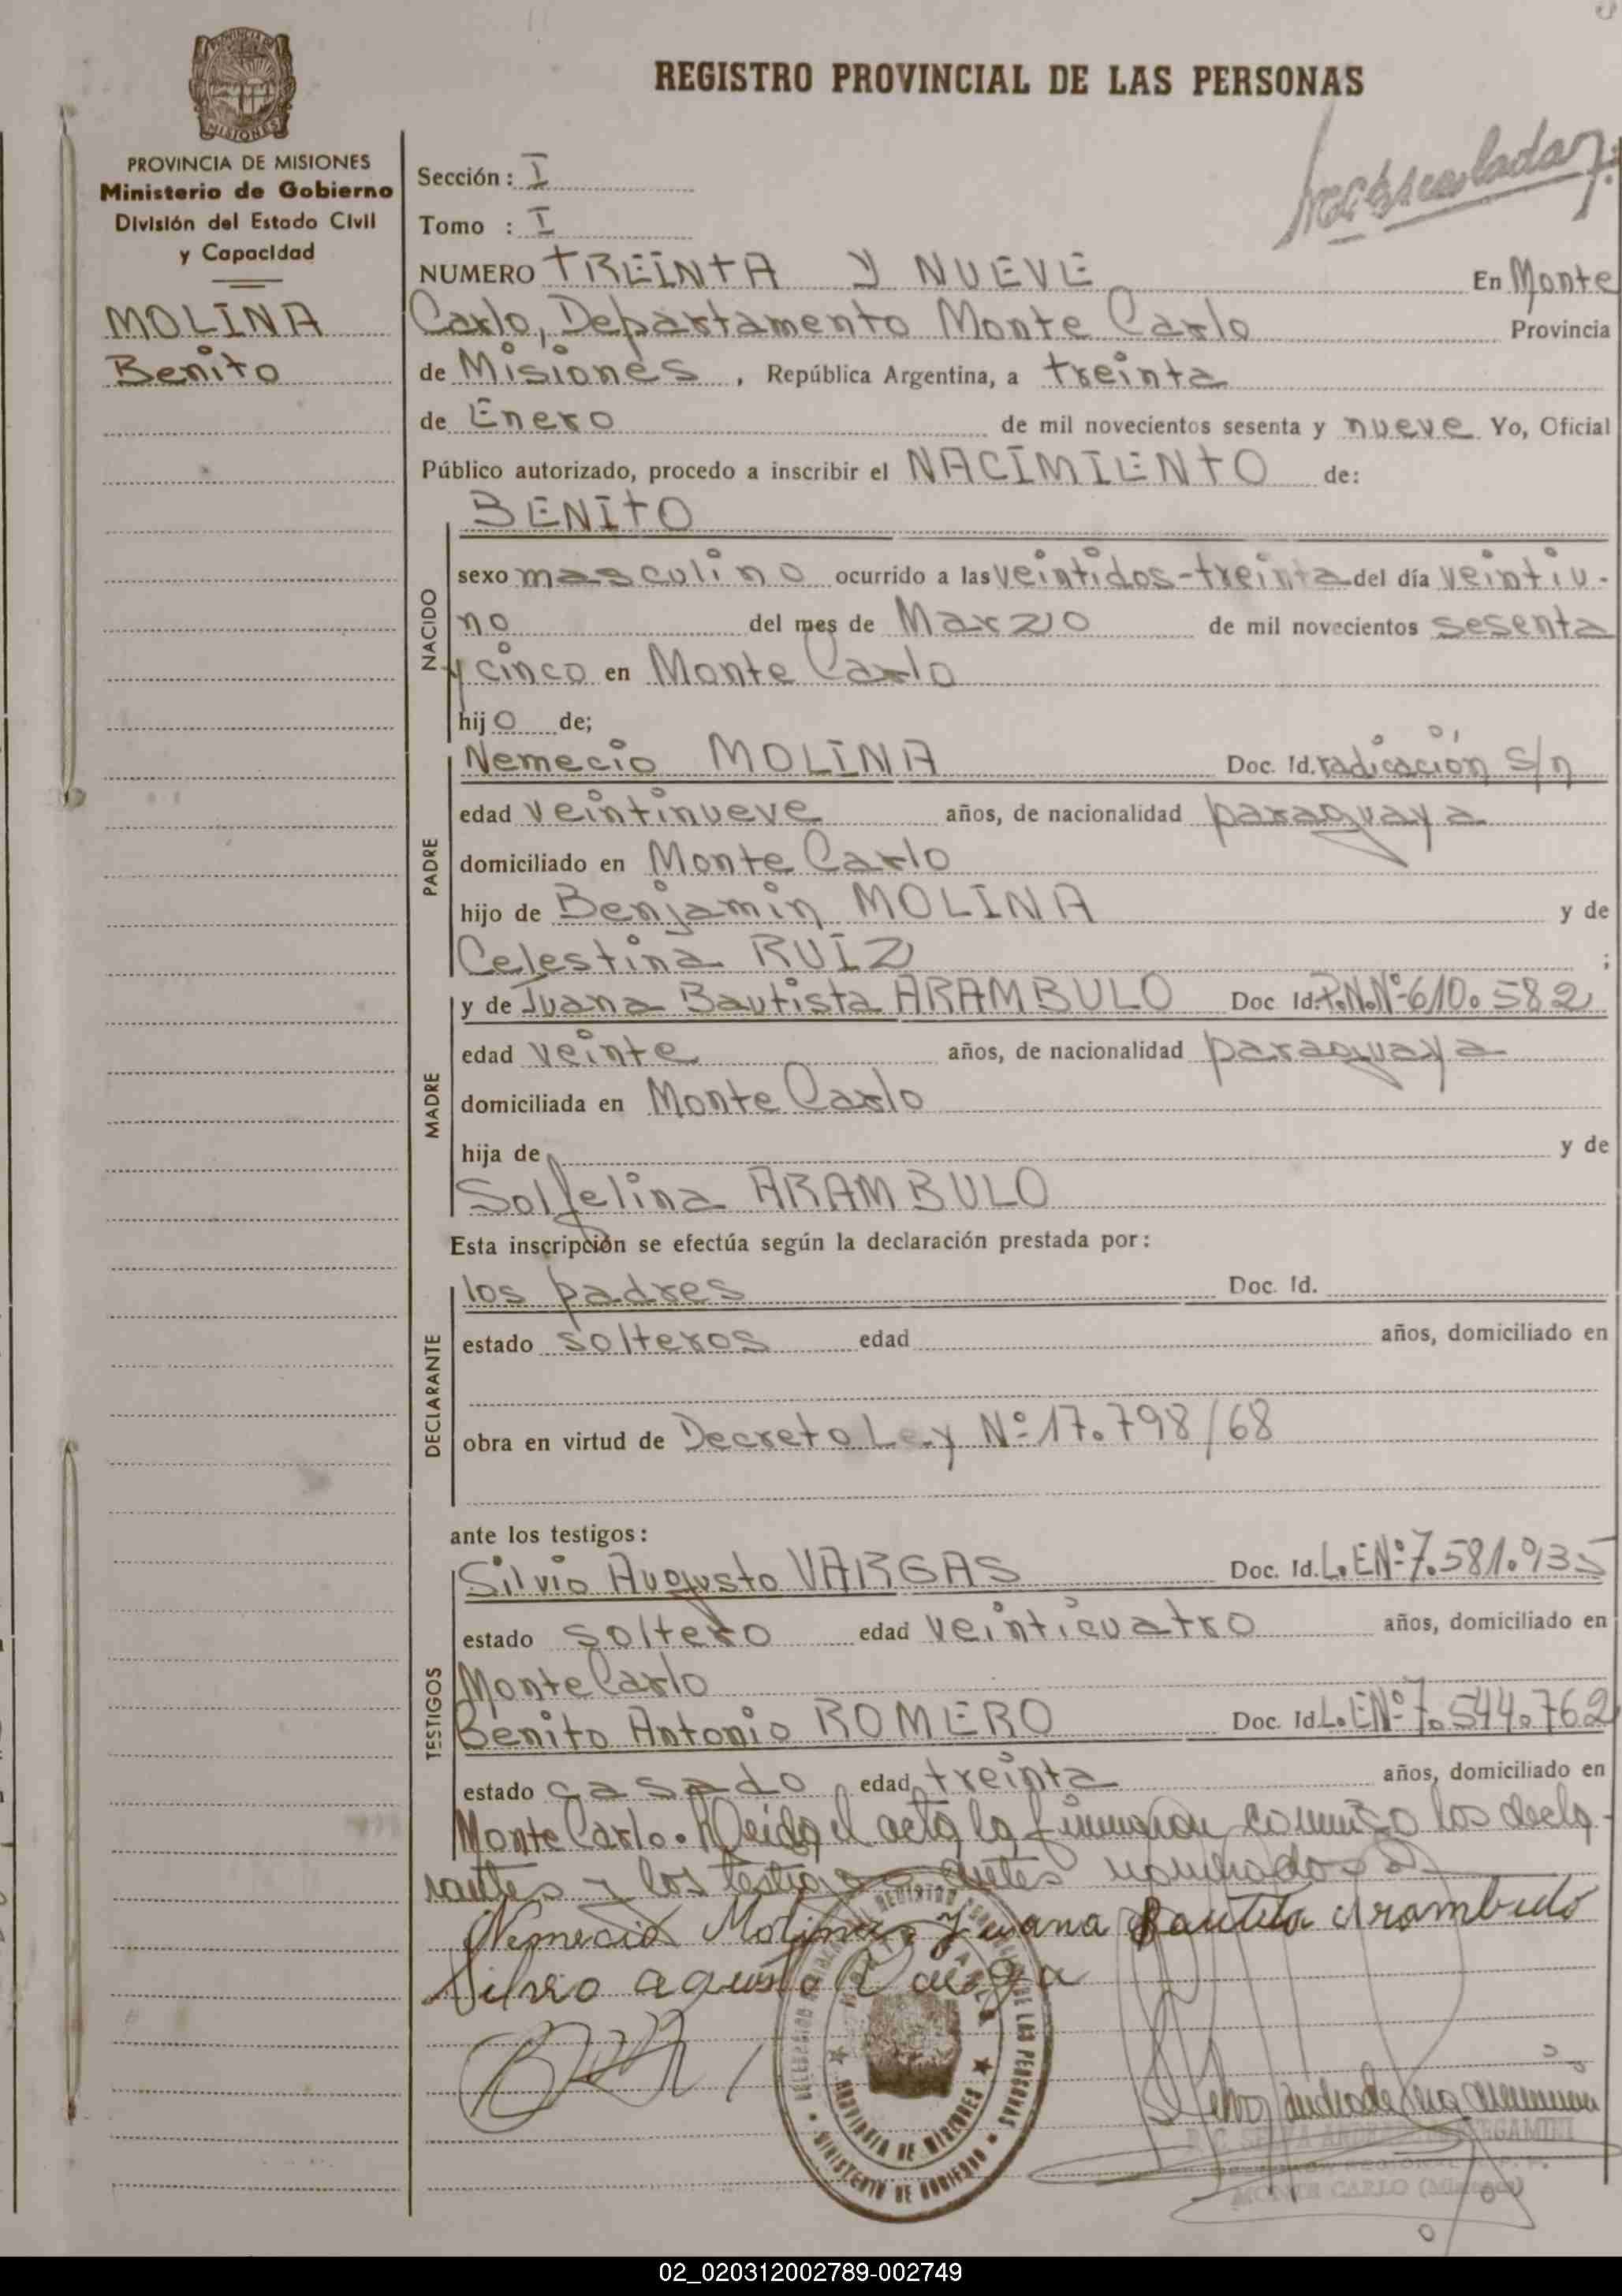 REGISTRO PROVINCIAL DE LAS PERSONAS
PROVINCIA DE MISIONES
Ministerio de Gobierno
División del Estado Civil
y Capacidad
MOLINA
Benito
Sección: I
Tomo : I
NUMERO TREINTA Y NUEVE En Monte
Carlo, Departamento Monte Carlo Provincia
de Misiones, República Argentina, a treinta
de Enero de mil novecientos sesenta y nueve Yo, Oficial
Público autorizado, procedo a inscribir el NACIMIENTO de:
NACIDO
BENITO
sexo masculino ocurrido a las veintidos-treinta del día veintiu-
no del mes de Marzo de mil novecientos sesenta
y cinco en Monte Carlo
hijo de;
PADRE
Nemecio MOLINA Doc. Id. radicación s/n
edad veintinueve años, de nacionalidad paraguaya
domiciliado en Monte Carlo
hijo de Benjamin MOLINA y de
Celestina RUIZ ;
MADRE
y de Juana Bautista ARAMBULO Doc Id. P.N.Nº610.582
edad veinte años, de nacionalidad paraguaya
domiciliada en Monte Carlo
hija de y de
Solfelina ARAMBULO
Esta inscripción se efectúa según la declaración prestada por:
DECLARANTE
los padres Doc. Id.
estado solteros edad años, domiciliado en
obra en virtud de Decreto Ley Nº17.798/68
ante los testigos:
TESTIGOS
Silvio Augusto VARGAS Doc. Id. L.ENº7.581.935
estado soltero edad veinticuatro años, domiciliado en
Monte Carlo
Benito Antonio ROMERO Doc. Id L.ENº7.544.762
estado casado edad treinta años, domiciliado en
Monte Carlo. Leida el acta la firmaron conmigo los decla-
rantes y los testigos antes nombrados
Nemecio Molina Juana Bautista Arambulo
Silvio agusto Vargas
PROVINCIA DE MISIONES
MINISTERIO DE GOBIERNO
DE LAS PERSONAS
MONTE CARLO (Misiones)
02_020312002789-002749